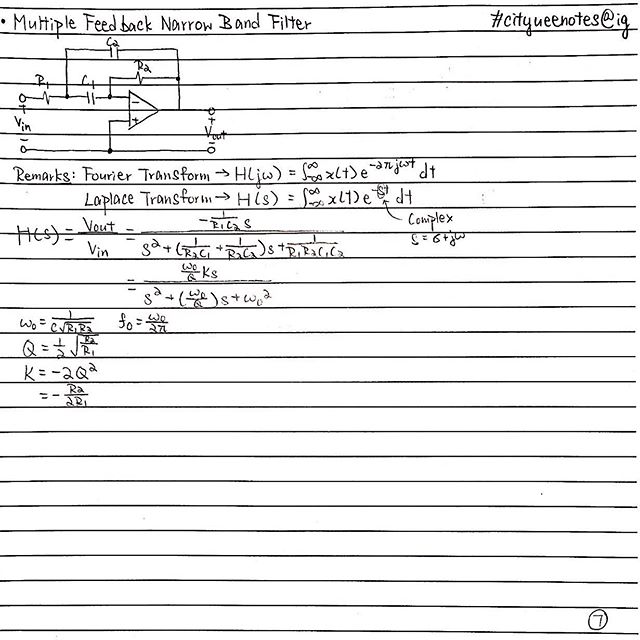 • Multiple Feedback Narrow Band Filter #cityueenotes@ig
C2
R1 C1 R2
− +
+ Vin − + Vout −
Remarks: Fourier Transform → H(jω) = ∫_{-∞}^{∞} x(t) e^{-2πjωt} dt
Laplace Transform → H(s) = ∫_{-∞}^{∞} x(t) e^{-st} dt
Complex
s = σ + jω
H(s) = Vout/Vin = (-1/(R1C2) s) / (s² + (1/(R2C1) + 1/(R2C2))s + 1/(R1R2C1C2))
= (ω0/Q Ks) / (s² + (ω0/Q)s + ω0²)
ω0 = 1/(C√(R1R2)) f0 = ω0/2π
Q = 1/2 √(R2/R1)
K = -2Q²
= - R2/2R1
7